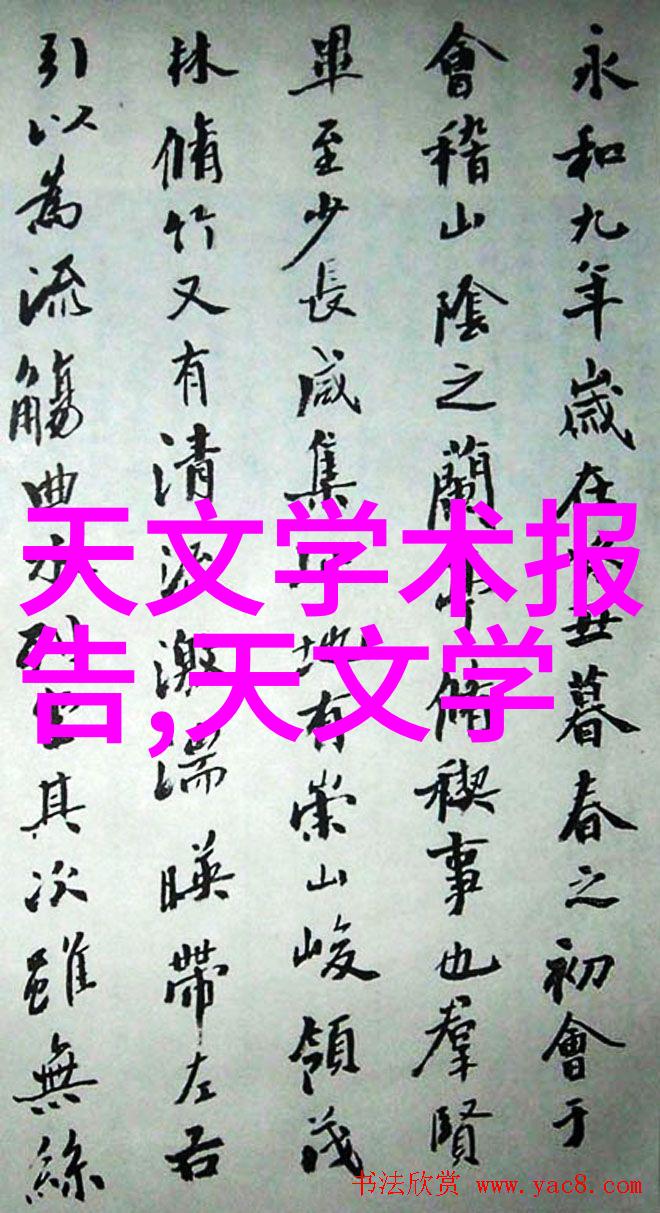 永和九年歲在丑暮春之初會于
會稽山陰之蘭脩稧事也羣賢
畢至少長咸集地有崇山峻領茂
林脩竹又有清流激湍暎帶左右
引以為流觴曲水列坐其次雖無絲
天文学术报
告,天文学
书法欣赏 www.yac8.com